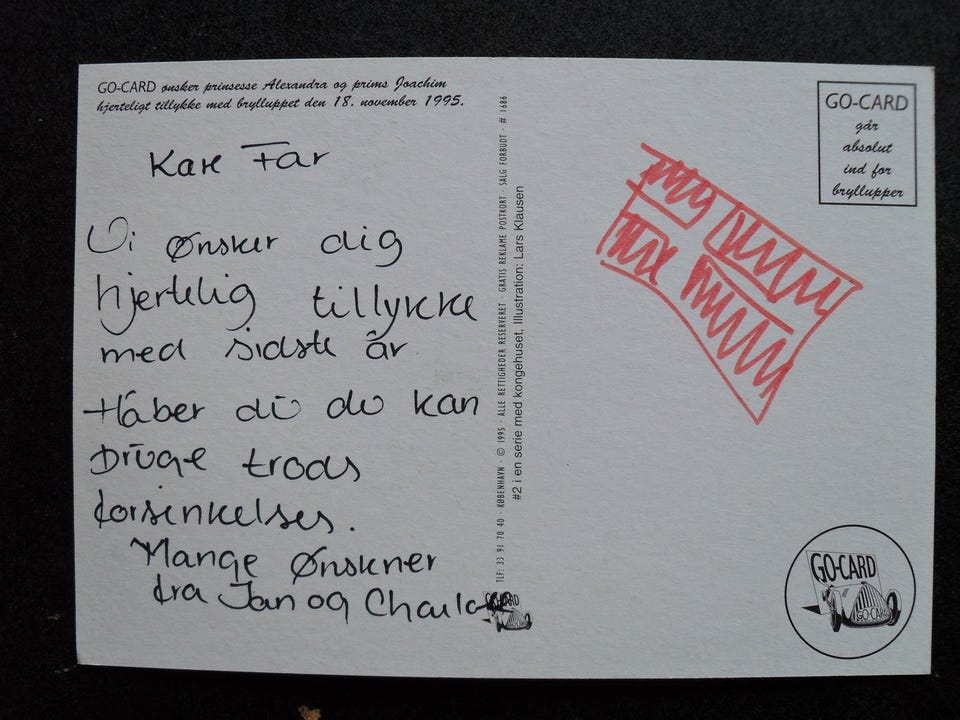 GO-CARD ønsker prinsesse Alexandra og prins Joachim
hjerteligt tillykke med brylluppet den 18. november 1995.
Kare Far
Vi Ønsker dig
hjertelig tillykke
med sidste år
Håber du du kan
Bruge trods
forsinkelses.
Mange Ønskner
fra Jan og
TLF: 33 91 70 40 · KØBENHAVN · © 1995 · ALLE RETTIGHEDER RESERVERET · GRATIS REKLAME POSTKORT · SALG FORBUDT · # 1686
#2 i en serie med kongehuset, Illustration: Lars Klausen
GO-CARD
går
absolut
ind for
bryllupper
GO-CARD
GO-CARD